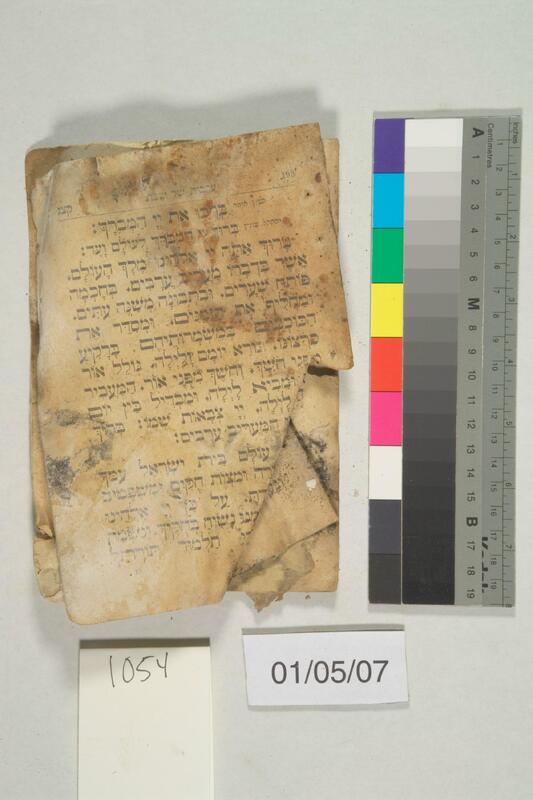 ברכו את יי המבורך:
ברוך יי המבורך לעולם ועד:
ברוך אתה יי אלהינו מלך העולם,
אשר בדברו מעריב ערבים, בחכמה
פותח שערים, ובתבונה משנה עתים,
ומחליף את הזמנים, ומסדר את
הכוכבים במשמרותיהם ברקיע
כרצונו, בורא יומם ולילה, גולל אור
מפני חשך, וחשך מפני אור, המעביר
ומביא לילה, ומבדיל בין יום
לילה, יי צבאות שמו: ברוך
המעריב ערבים:
עולם בית ישראל עמך
ומצות חקים ומשפטים
על יי אלהינו
נשיח בחקיך ונשמח
תלמוד תורתך
1054
01/05/07
inches
Centimetres
1 2 3 4 5 6 7 8 9 10 11 12 13 14 15 16 17 18 19
A 1 2 3 4 5 6 M 8 9 10 11 12 13 14 15 B 17 18 19